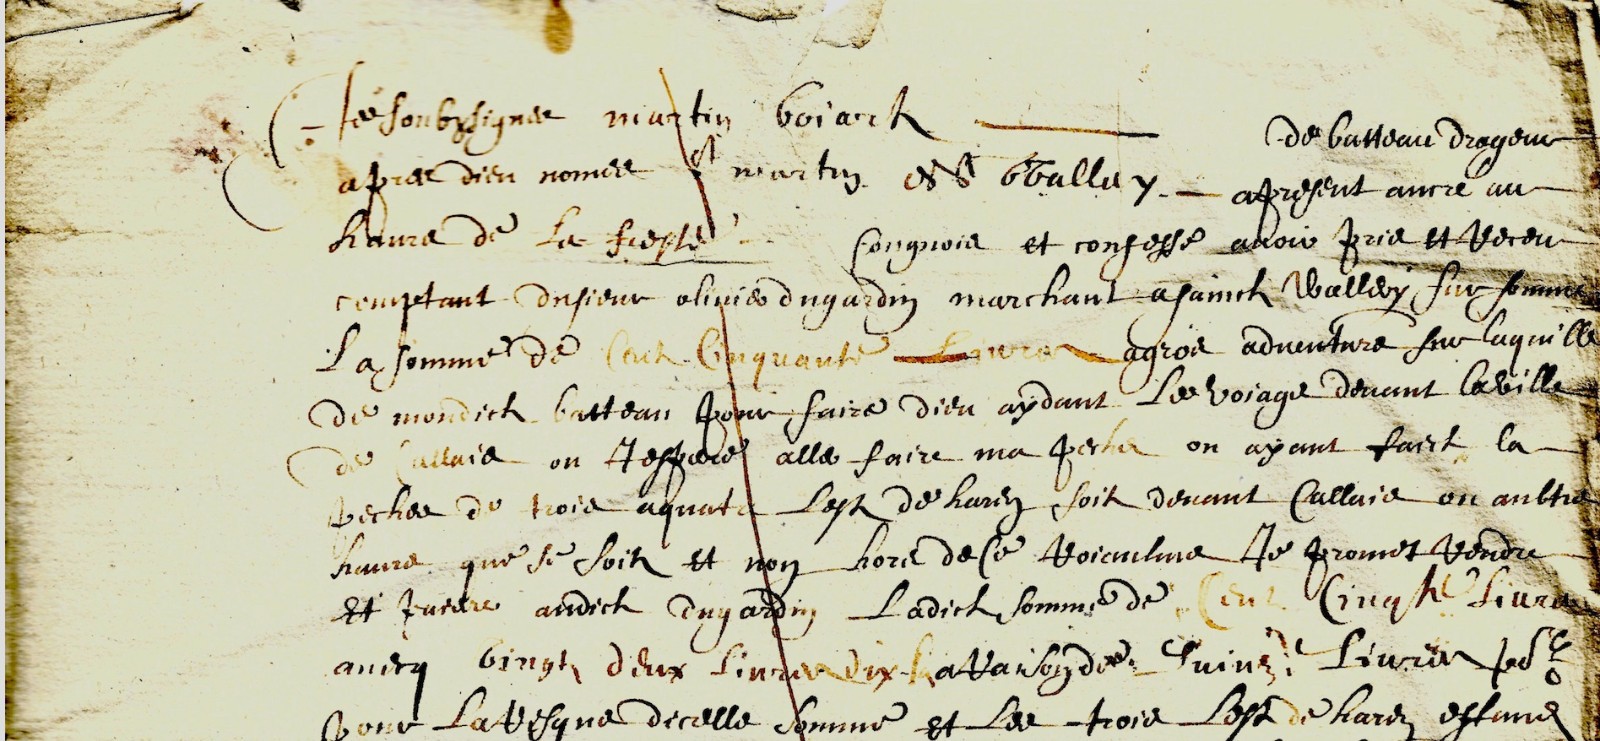 Je soubzsigne martin boiart de batteau drogeur
apres dieu nomee st martin est Walley apresent ancre au
havre de congnois et confesse avoir pris et receu
comptant du sieur olivier dugardin marchant a sainct Wallery sur somme
La somme de Cent Cinquante Livres a grose adventure sur laquille
de mondict batteau pour faire dieu aydant Le voiage devant la ville
de Callais ou J espere alle faire ma peche ou ayant faict la
peches de trois a quatre Lest de haren soit devant Callais ou aultre
havre que se soit et non hors de ce Je promet rendre
et paiere audict dugardin Ladicte somme de Cent Cinqte Livres
avecq vingt deux Livres dix s a raison de quinze Livres po ct
pour La resque dicelle somme et Les trois Lest de haren estans